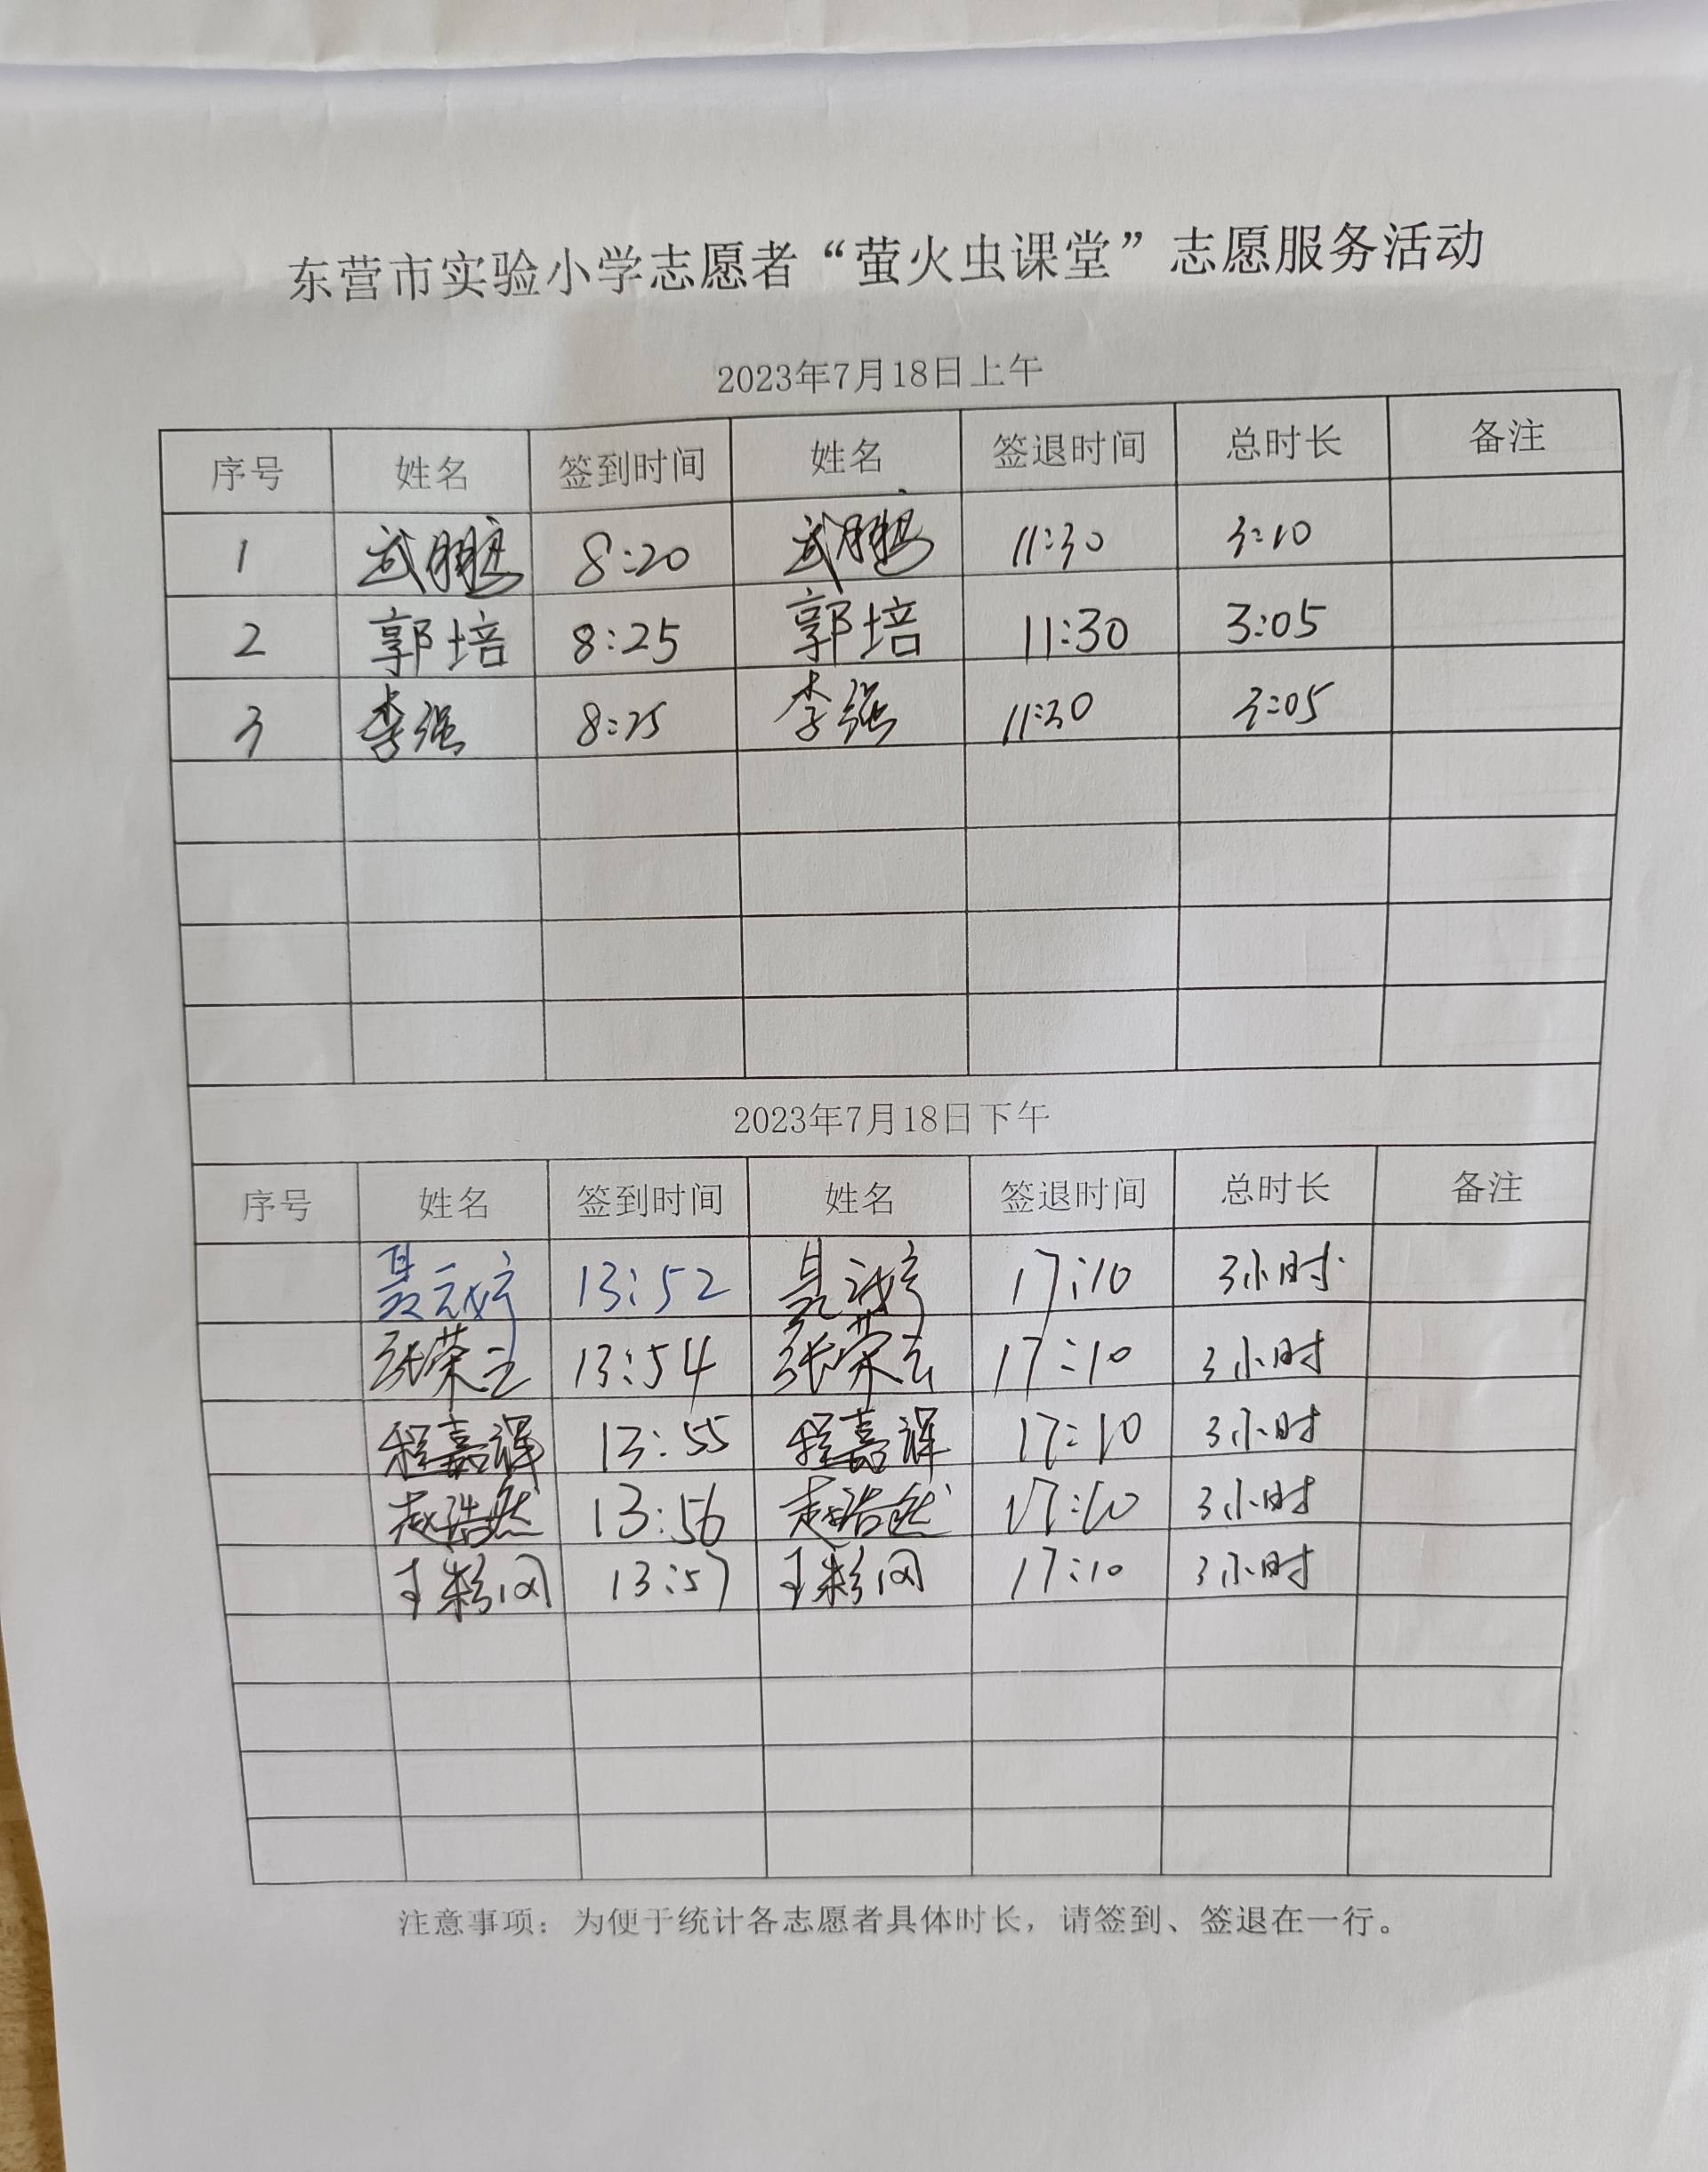 东营市实验小学志愿者“萤火虫课堂”志愿服务活动
2023年7月18日上午
序号 姓名 签到时间 姓名 签退时间 总时长 备注
1 武鹏 8:20 武鹏 11:30 3:10
2 郭培 8:25 郭培 11:30 3:05
3 李强 8:25 李强 11:30 3:05
2023年7月18日下午
序号 姓名 签到时间 姓名 签退时间 总时长 备注
聂云婷 13:52 聂云婷 17:10 3小时
张荣云 13:54 张荣云 17:10 3小时
程嘉辉 13:55 程嘉辉 17:10 3小时
赵浩然 13:56 赵浩然 17:10 3小时
王彩 13:57 王彩 17:10 3小时
注意事项：为便于统计各志愿者具体时长，请签到、签退在一行。